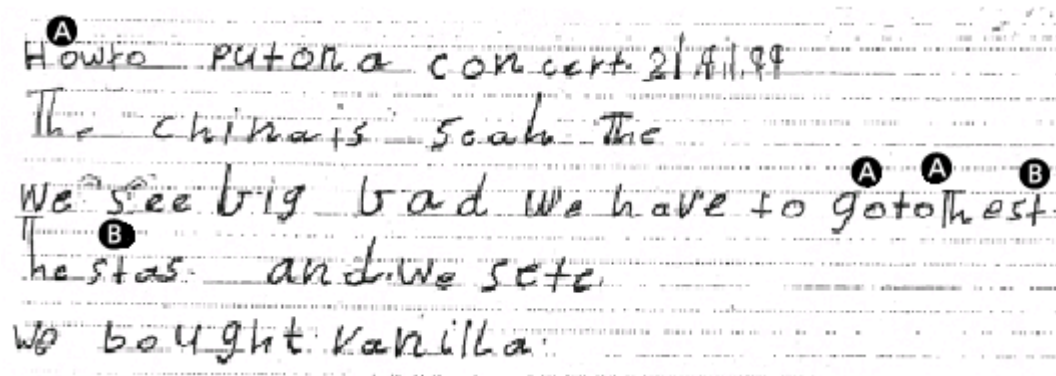 A
Howto puton a concert 21.9.1.99
The chinais seah The
A A B
We see big bad we have to gotoThest
B
The stas. and.we sete
we bought vanilla.